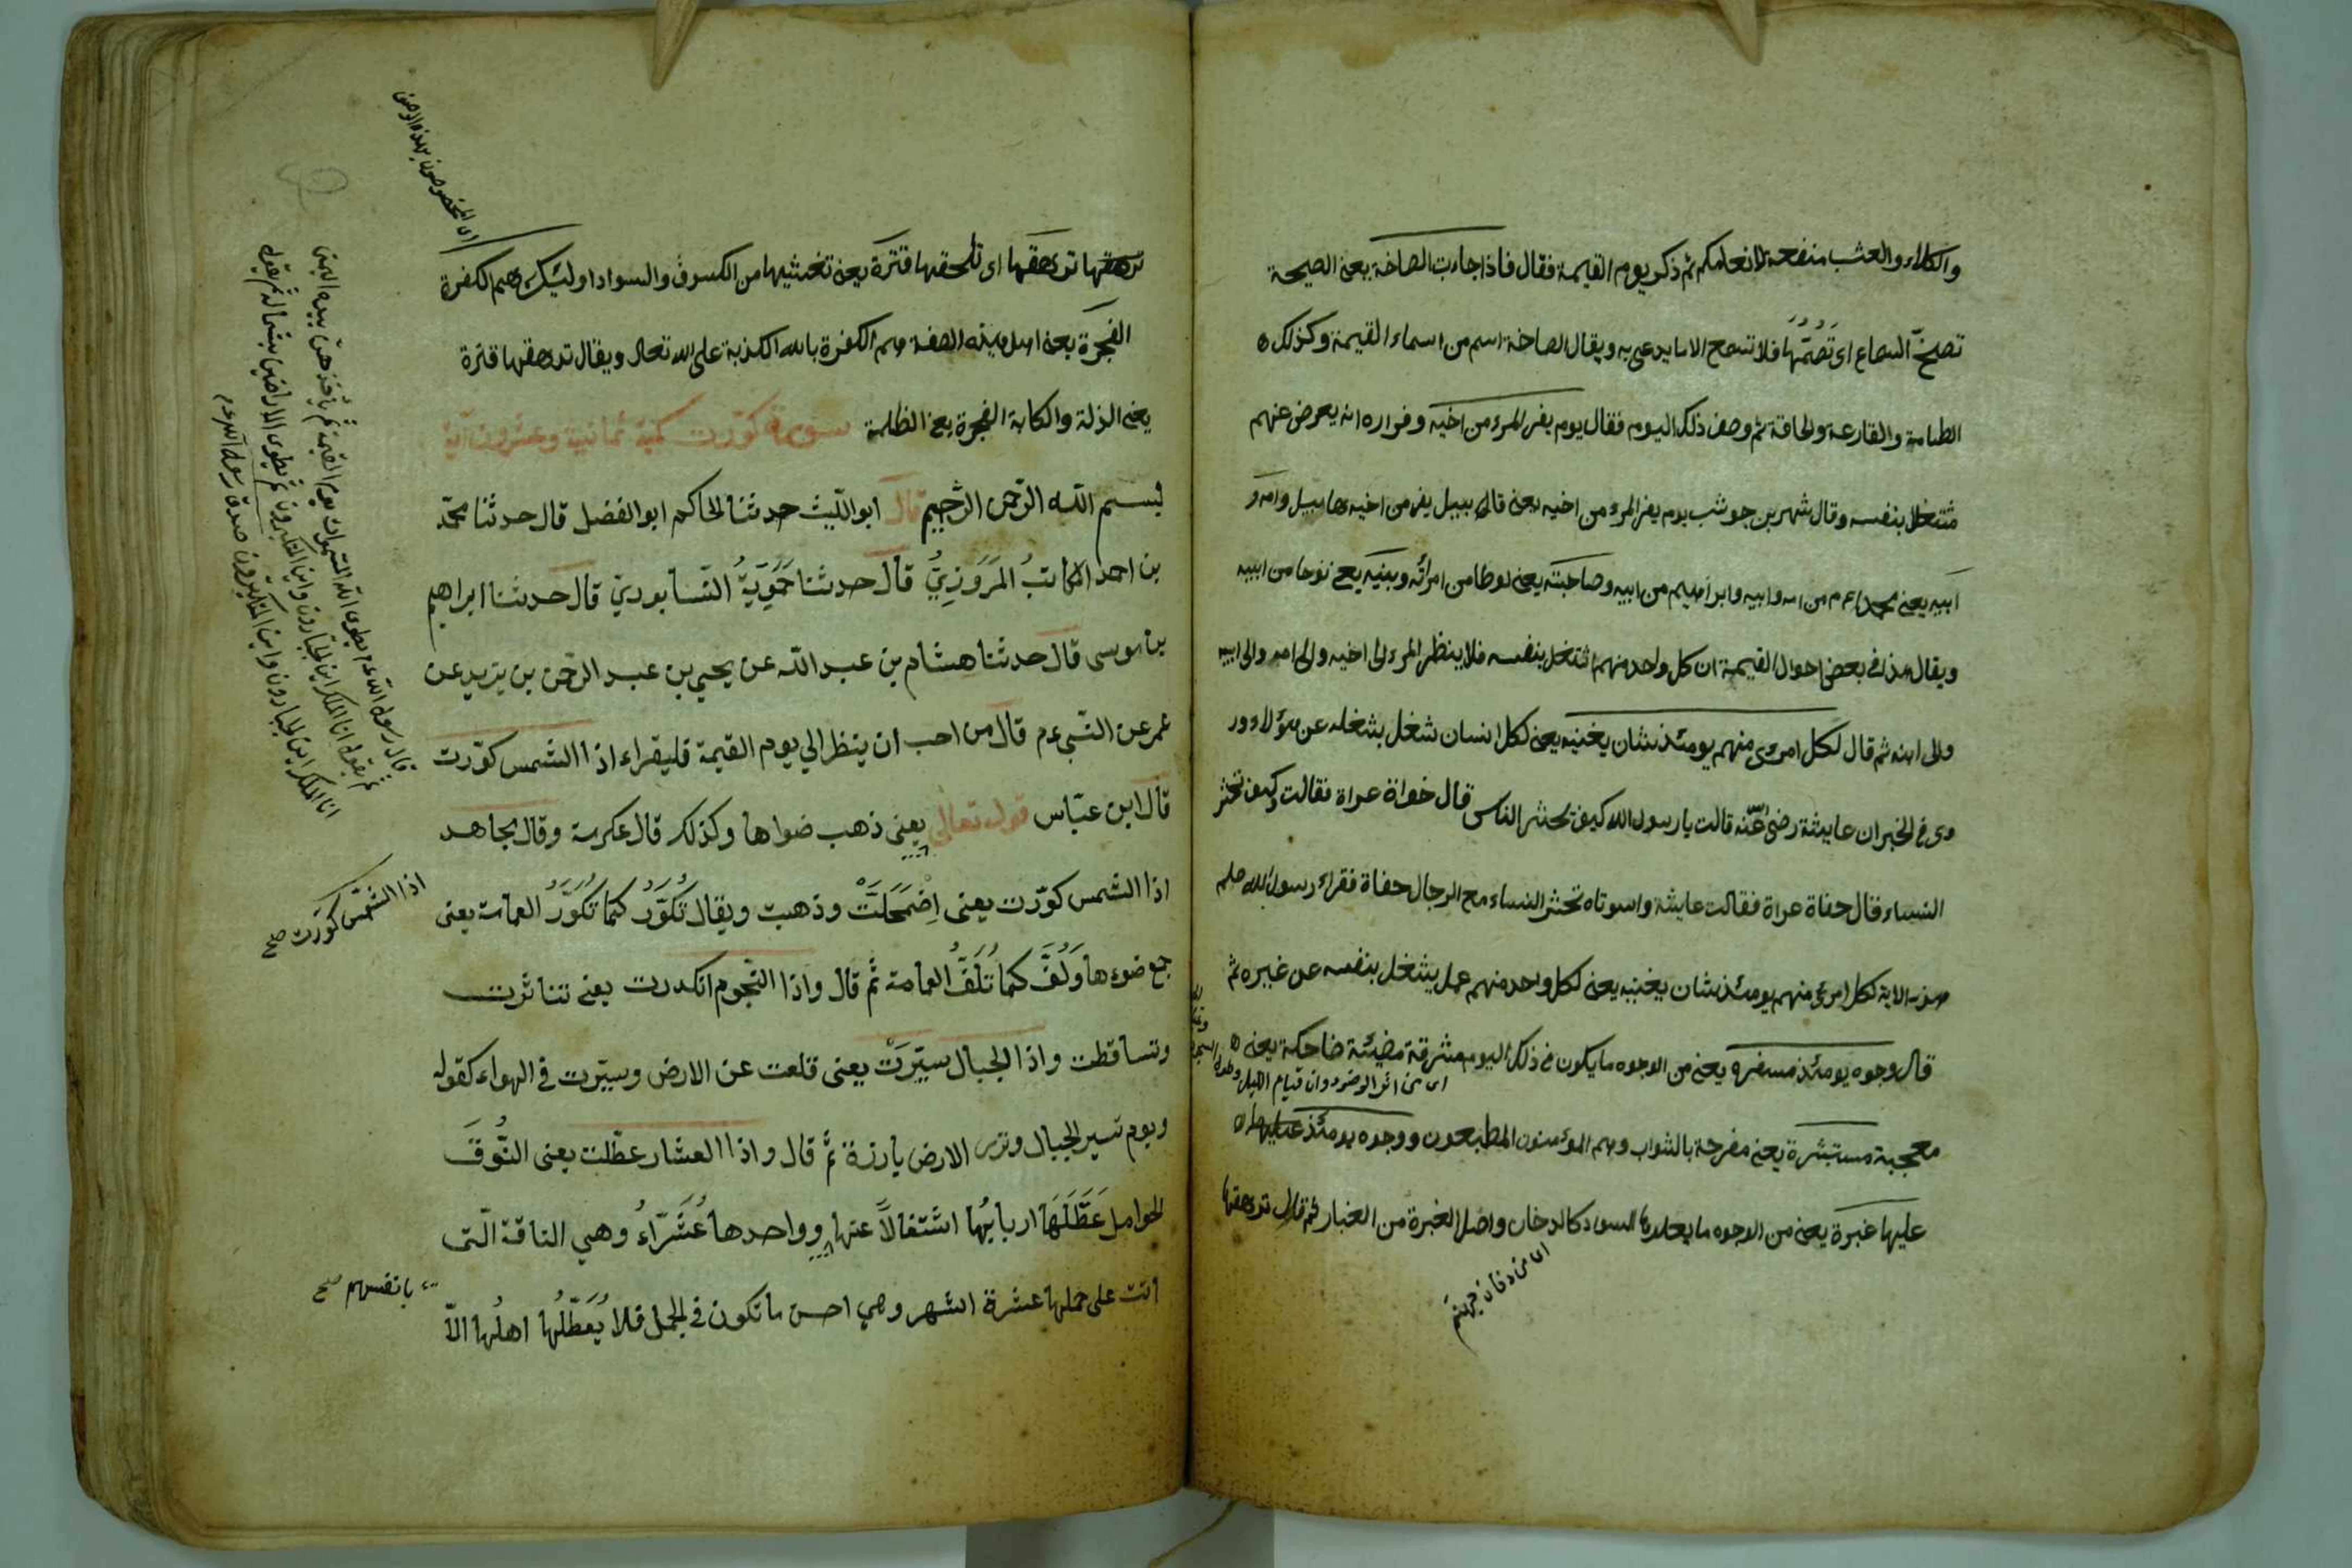 والكلاء والعشب منفعة لانعامكم ثم ذكر يوم القيمة فقال فاذا جاءت الصاخة يعنى الصيحة
تصخ السماع اى تَصُمُّها فلا تسمع الا ما يدعى به ويقال الصاخة اسم من اسماء القيمة وكذلك
الطامة والقارعة والحاقة ثم وصف ذلك اليوم فقال يوم يفر المرء من اخيه وفراره انه يعرض عنهم
مشتغلا بنفسه وقال شهر بن حوشب يوم يفر المرء من اخيه يعنى قابيل يفر من اخيه هابيل وامه و
ابيه يعنى محمدا عم من امه وابيه وابراهيم من ابيه وصاحبته يعنى لوطا من امراته وبنيه يعنى نوحا من ابنه
ويقال هذا فى بعض احوال القيمة ان كل واحد منهم اشتغل بنفسه فلا ينظر المرء الى اخيه والى امه والى ابيه
والى ابنه ثم قال لكل امرئ منهم يومئذ شان يغنيه يعنى لكل انسان شغل يشغله عن هؤلاء ور
وى فى الخبر ان عايشة رضى عنه قالت يا رسول الله كيف تحشر الناس قال حفاة عراة فقالت وكيف تحشر
النساء قال حفاة عراة فقالت عايشة واسوتاه تحشر النساء مع الرجال حفاة فقراء رسول الله صلم
هذه الاية لكل امرئ منهم يومئذ شان يغنيه يعنى لكل واحد منهم عمل يشغل بنفسه عن غيره ثم
قال وجوه يومئذ مسفرة يعنى من الوجوه ما يكون فى ذلك اليوم مشرقة مضيئة ضاحكة يعنى
اى من اثر الوضوء وان قيام الليل
معجبة مستبشرة يعنى مفرحة بالثواب وهم المؤمنون المطيعون ووجوه يومئذ عليها
عليها غبرة يعنى من الوجوه ما يعلوها السواد كالدخان واصل الغبرة من الغبار ثم قال ترهقها
اى من دخان جهنم
ترهقها ترهقها اى تلحقها قترة يعنى تغشيها من الكسوف والسواد اولئك هم الكفرة
الفجرة يعنى اهل هذه الصفة هم الكفرة بالله الكذبة على الله تعالى ويقال ترهقها قترة
يعنى الذلة والكابة الفجرة يعنى الظلمة سورة كورت مكية ثمانية وعشرون اية
بسم الله الرحمن الرحيم قال ابو الليث حدثنا الحاكم ابو الفضل قال حدثنا محمد
بن احمد الكاتبُ المَرَوَزِيُّ قال حدثنا حَمَّوَيَّةُ النيسابورى قال حدثنا ابراهيم
بن موسى قال حدثنا هشام بن عبد الله عن يحيى بن عبد الرحمن بن يزيد عن
عمر عن النبى عم قال من احب ان ينظر الي يوم القيمة فليقراء اذا الشمس كورت
قال ابن عباس قوله تعالى يعنى ذهب ضواها وكذلك قال عكرمة وقال مجاهد
اذا الشمس كورت يعنى اِضْمَحَلَتْ وذهبت ويقال تُكَوَّرُ كما تُكَوَّرُ العمامة يعنى
جمع ضوءها وَلُفَّ كما تُلَفُّ العمامة ثم قال واذا النجوم انكدرت يعنى تناثرت
وتساقطت واذا الجبال سيّرَتْ يعنى قلعت عن الارض وسيّرت فى الهواء كقوله
ويوم نسير الجبال وترى الارض بارزة ثم قال واذا العشار عطّلت يعنى النُّوقَ
الحوامل عَطَّلَهَا اربابُها اشتغالاً عنها وواحدها عُشَرَاءُ وهي الناقة التى
اتت على حملها عشرة اشهر وهي احسن ما تكون فى الحمل فلا يُعَطِّلُها اهلُها الاّ
اى المخصوصون بهذه الاوصاف
قال رسول الله عم يطوى الله السموات يوم القيمة ثم ياخذهن بيده اليمنى
ثم يقول انا الملك اين الجبارون واين المتكبرون ثم يطوى الارضين بشماله ثم يقول
انا الملك اين الجبارون واين المتكبرون صدق رسول الله عم
اذا الشمس كورت صح
بانفسهم صح